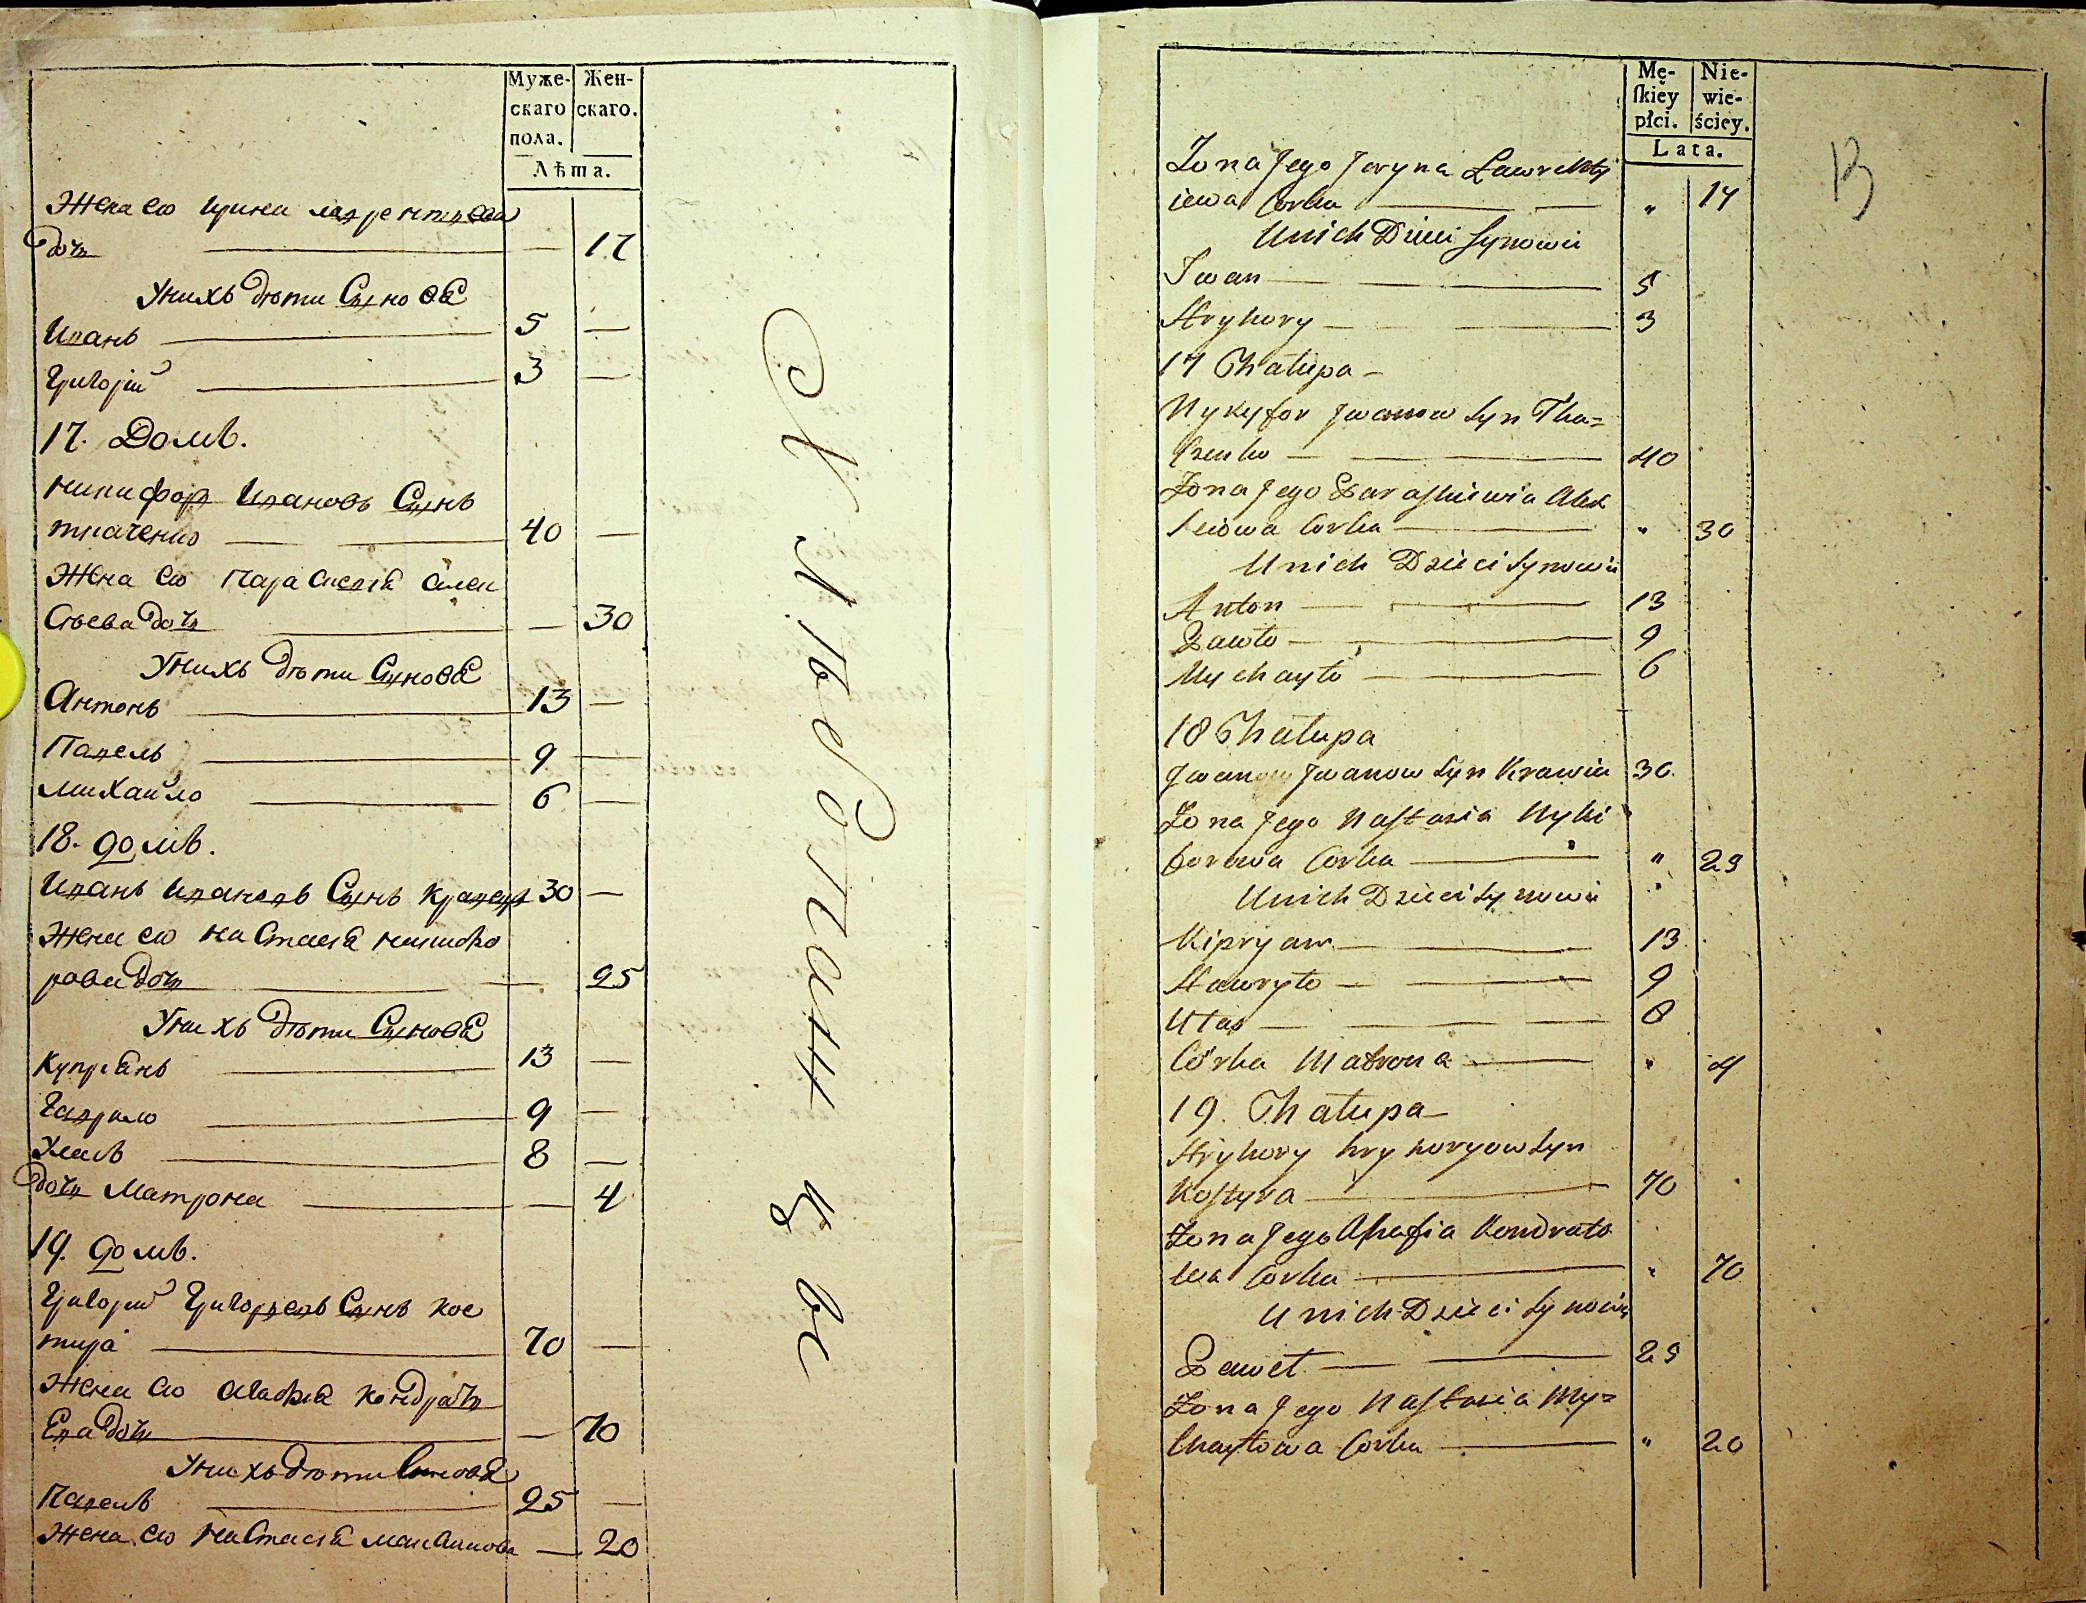 Муже-
скаго
пола.
Жен-
скаго.
Лѣта.
Жена его Ирина лаврентиева
дочь — 17
У нихъ дѣти Сынове
Иванъ — 5 —
Григорій — 3 —
17. Домъ.
Никифор Ивановъ Сынъ
ткаченко — 40 —
Жена его Параскевiа Алек
сѣева дочь — 30
У нихъ дѣти Сынове
Антонъ — 13 —
Павелъ — 9 —
Михайло — 6 —
18. домъ.
Иванъ Ивановъ Сынъ кравец 30 —
Жена его Настасiа Никифо
рова дочь — 25
У нихъ дѣти Сынове
Купріанъ — 13 —
Гаврило — 9 —
Уласъ — 8 —
дочь Матрона — 4
19. домъ.
Григорій Григорьевъ Сынъ кос
тира — 70 —
Жена его Агафiа кондратъ
ева дочь — 70
У нихъ дѣти Синове
Павелъ — 25 —
Жена его Настасiа
— 20
Mę-
ſkiey
płci.
Nie-
wie-
ściey.
Lata.
13
Żona Jego Jaryna Ławrenty
iewa Corka — " 17
U nich Dzieci Synowie
Iwan — 5
Hryhory — 3
17 Chałupa —
Nykyfor Jwanow Syn Tka=
czenko — 40
Żona Jego Paraskiewia Alex
Ieiowa Corka — " 30
U nich Dzieci Synowie
Anton — 13
Pawło — 9
Mychayło — 6
18 Chałupa
Jwanow Jwanow Syn Krawiec 30.
Żona Jego Nastazia Nyki
forowa Corka — " 25
U nich Dzieci Synowie
Kipryan — 13
Hawryło — 9
Ułas — 8
Córka Matrona — " 4
19. Chałupa —
Hryhory hryhoryow Syn
Kostyra — 70
Żona Jego Ahafia Kondrato
wa Corka — " 70
U nich Dzieci Synowie
Paweł — 25
Żona Jego Nastazia My=
chayłowa Corka — " 20